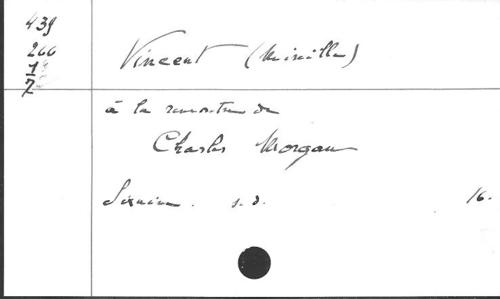 439
266
1
7
Vincent (Mireille)
à la rencontre de
Charles Morgan
s.d. 16.